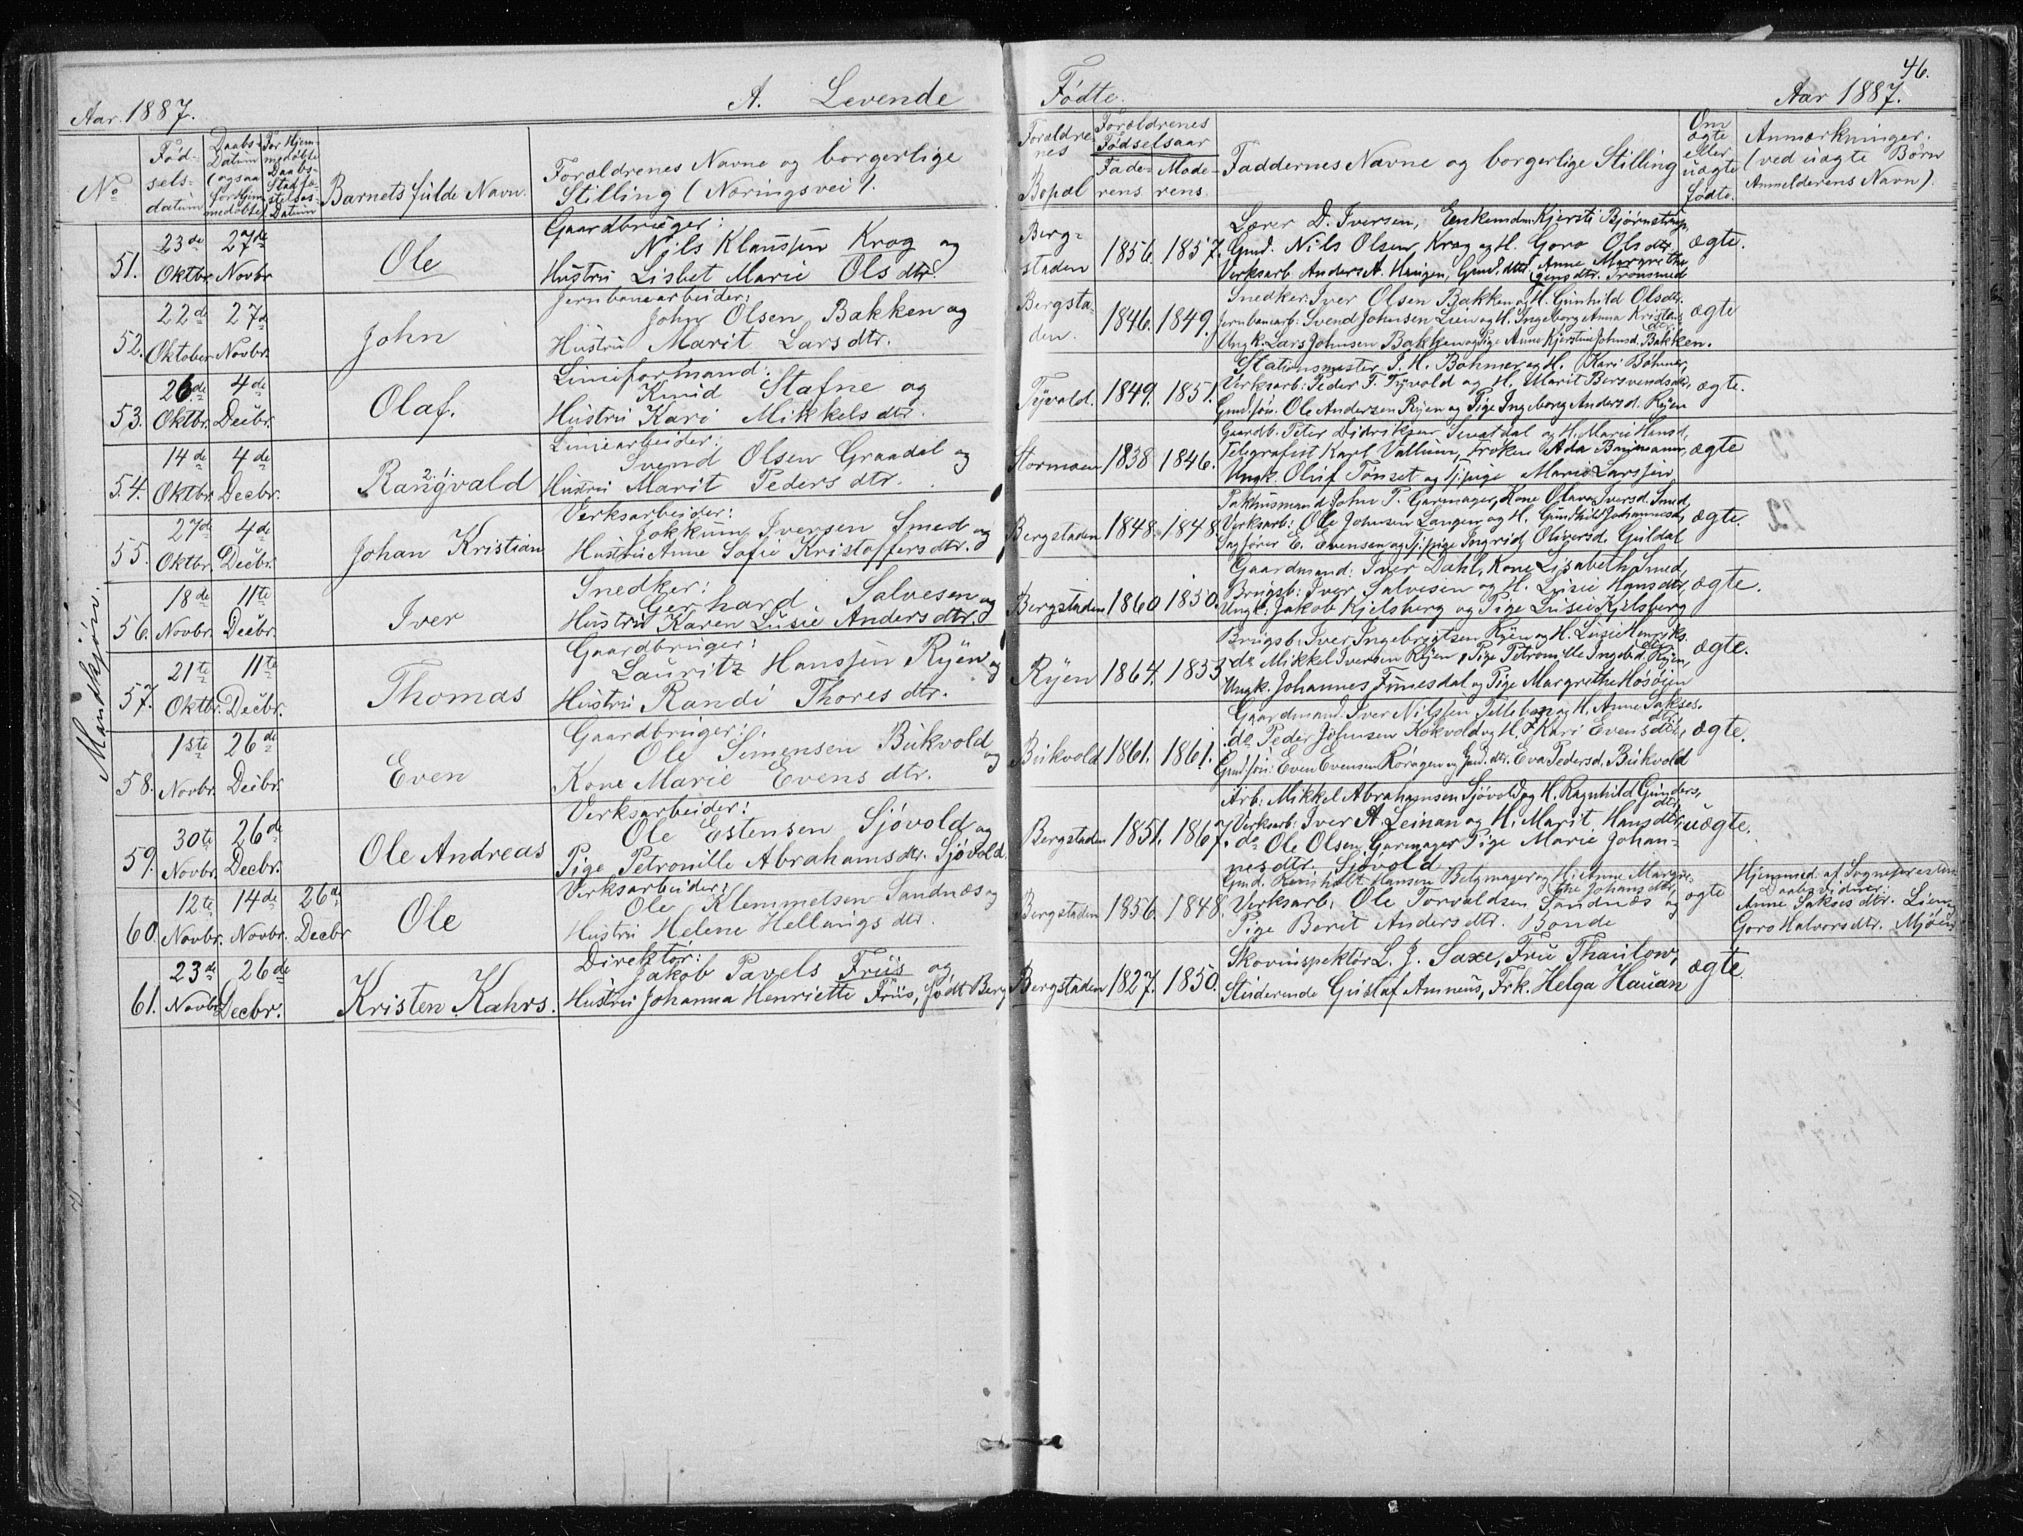 46.
Aar. 1887.
A. Levende
Fødte.
Aar 1887.
No
Fødselsdatum
Daabs-Datum (ogsaa for Hjemmedøbte)
For Hjemmedøbte Daabs Stadfæstelses-Datum
Barnets fulde Navn.
Forældrenes Navne og borgerlige Stilling (Næringsvei).
Forældrenes Bopæl
Forældrenes Fødselsaar
Faderens
Moderens
Faddernes Navne og borgerlige Stilling
Om ægte eller uægte fødte.
Anmærkninger. (ved uægte Børn Anmelderens Navn).
Mandkjøn.
51.
23de Oktbr.
27de Novbr.
Ole
Gaardbruger:
Nils Klaussen Krog og
Hustru Lisbet Marie Olsdtr.
Bergstaden
1856.
1857.
Lærer D. Iversen, Enkemdm. Kjersti Bjørnstrup,
Gmd. Nils Olsen Krog og H. Goro Olsdtr.
Verksarb. Anders A. Haugen, Gmd. dttr. Anne Margrethe
ægte.
52.
22de Oktober
27de Novbr.
John
Jernbanearbeider:
John Olsen Bakken og
Hustru Marit Larsdtr.
Bergstaden.
1846.
1849.
Snedker: Iver Olsen Bakken og H. Gunhild Olsdtr.
Jernbanearb: Svend Johnsen Lien og H. Ingeborg Anna Kristensdtr.
Ungk. Lars Johnsen Bakken og Pige Anne Kjerstine Johnsd. Bakken.
ægte
53.
26de Oktbr.
4de Decbr.
Olaf.
Linieformand:
Knud Stafne og
Hustru Kari Mikkelsdtr.
Tyvold.
1849.
1851.
Stationsmester T. H. Bøhmer og H. Kari Bøhmer,
Verksarb: Peder T. Tyvold og H. Marit Bersvendsdtr,
Gmd. søn. Ole Andersen Ryen og Pige Ingeborg Andersd. Ryen
ægte.
54.
14de Oktbr.
4de Decbr.
2. 1.
Rangvald
Liniearbeider:
Svend Olsen Graadal og
Hustru Marit Pedersdtr.
Stormoen
1838
1846.
Gaardb. Peter Didriksen og H. Marie Hansd,
Telegrafist Karl Vallum, Frøken Ada
Ungk. Oluf Tønset og Tj. pige Marie Larssen
ægte
55.
27de Oktbr.
4de Decbr.
Johan Kristian
Verksarbeider:
Jokkum Iversen Smed og
Hustru Anne Sofie Kristoffersdtr.
Bergstaden
1848.
1848.
Pakhusmand John P. Garmager, Kone Olava Iversd. Smed,
Verksarb: Ole Johnsen Langen og H. Gundhild Johannesd,
Sagfører E. Evensen og Tj. pige Ingrid Oliversd. Guldal
ægte.
56.
18de Novbr.
11te Decbr.
Iver
Snedker:
Gerhard Salvesen og
Hustru Karen Lusie Andersdtr.
Bergstaden
1860
1850.
Gaardmand: Iver Dahl, Kone Lisabeth Smed,
Brugsb: Iver Salvesen og H. Lusie Hansdtr,
Ungk: Jakob Kjelsberg og Pige Lusie Kjelsberg
ægte.
57.
21te Oktbr.
11te Decbr.
Thomas
Gaardbruger:
Lauritz Hanssen Ryen og
Hustru Randi Thoresdtr.
Ryen
1864.
1853
Brugsb: Iver Ingebrigtsen Ryen og H. Lusie Henriksdtr.
do Mikkel Iversen Ryen, Pige Petronille Ingeb.d. Ryen,
Ungk. Johannes Funesdal og Pige Margrethe Mosøien
ægte.
58.
1ste Novbr.
26de Decbr.
Even
Gaardbruger:
Ole Simensen Bukvold og
Kone Marie Evensdtr.
Bukvold
1861.
1861.
Gaardmand Iver Nilssen og H. Anne Jaksesdtr.
do Peder Johnsen Kokvold og H. Kari Evensdtr,
Gmd. søn: Even Evensen Røragen og Gmd. dtr. Eva Pedersd. Bukvold
ægte.
59.
30te Novbr.
26de Decbr.
Ole Andreas
Verksarbeider:
Ole Estensen Sjøvold og
Pige Petronille Abrahamsdtr. Sjøvold.
Bergstaden
1851.
1867.
Arb: Mikkel Abrahamsen Sjøvold og H. Ragnhild Gundersdtr,
Verksarb: Iver A. Leinan og H. Marit Hansdtr,
do Ole Olsen Garmager Pige Marie Johan-
nesdtr. Sjøvold
uægte.
60.
12te Novbr.
14de Novbr.
26de Decbr
Ole
Verksarbeider:
Ole Klemmetsen Sandnæs og
Hustru Helene Hellanigsdtr.
Bergstaden
1856.
1848.
Gmd. Reinholdt Hansen Belgmager og H. Anne Margrethe Johansdtr,
Verksarb. Ole Torvaldsen Sandnæs og
Pige Berit Andersdtr. Bonde
ægte
Hjemmed. af Sognepresten
Daabsvidner:
Anne Jaksesdtr. Lien
Goro Halvorsdtr. Mjøen
61.
23de Novbr.
26de Decbr.
Kristen Kahrs.
Direktør:
Jakob Pavels Friis og
Hustru Johanna Henriette Friis, født Berg
Bergstaden
1827.
1850.
Skovinspektør L. J. Saxe, Fru Thaulow,
Studerende Gustaf Amneus, Frk. Helga Hauan
ægte